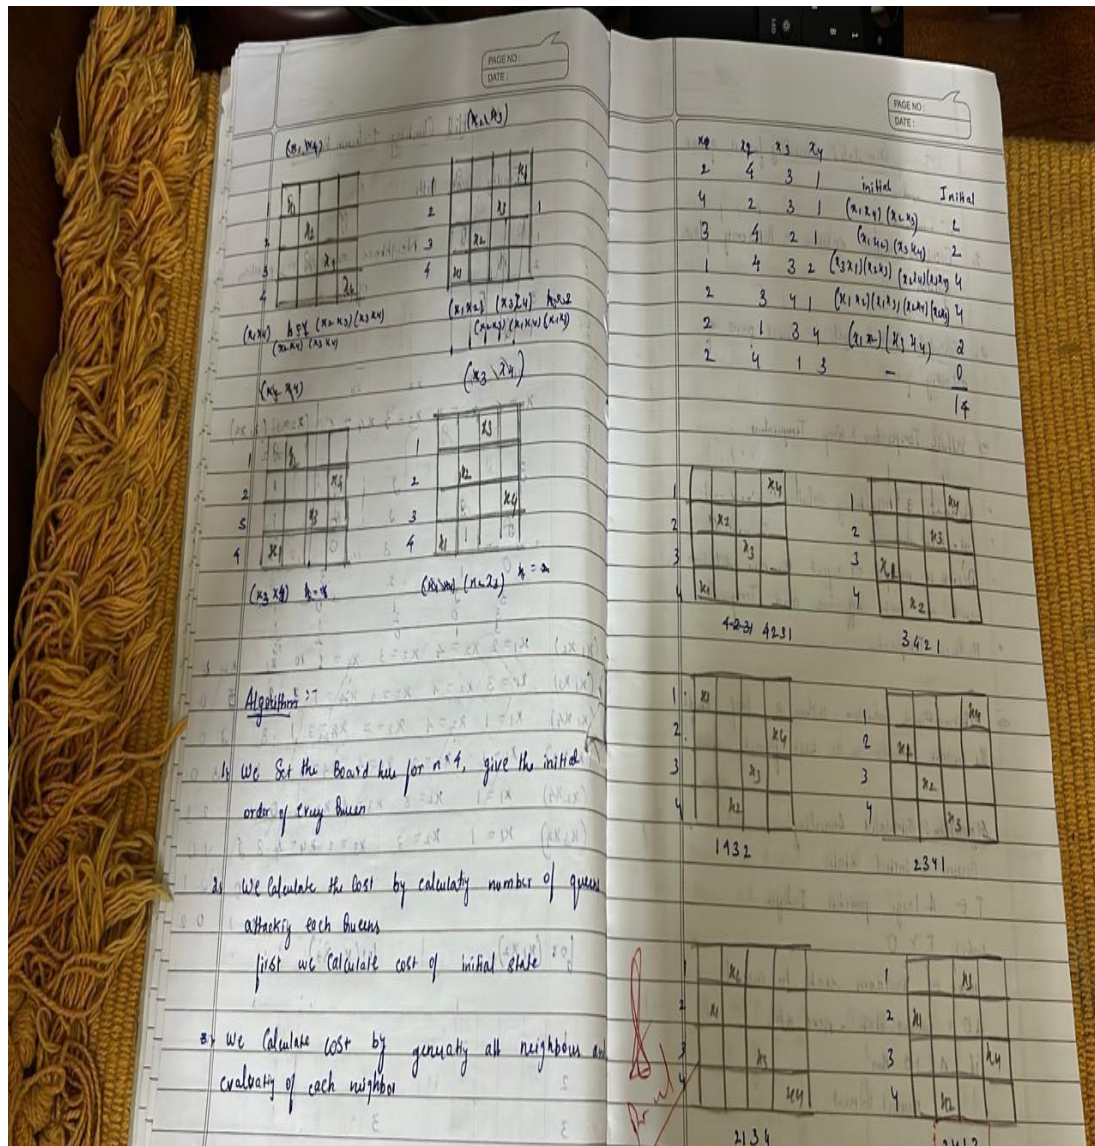 PAGE NO :
DATE :
(x2 x3)
(x1 x4)
1
x1
2
x2
3
4
1
x4
2
x3
1
3
x2
4
x1
(x1 x4) h=4 (x2 x3) (x3 x4)
(x2 x4)
(x1 x2) (x3 x4)
(x3 \ x4)
1
x2
2
1
x4
3
x3
4
x1
1
x3
2
x2
3
x4
4
x1
1
(x3 x4)
(x2 x3)
Algorithm :-
1) We Set the Board here for n*4, give the initial
order of every Queen
2) We Calculate the Cost by calculatig number of queens
attackig each Queens
first we Calculate cost of initial state
3) We Calculate cost by genuatig all neighbous and
evaluatig of each neighbor
PAGE NO :
DATE :
x1 x2 x3 x4
2 4 3 1 initial Initial
4 2 3 1 (x1 x4) (x2 x3) 2
3 4 2 1 (x1 x2) (x3 x4) 2
1 4 3 2 (x3 x1) (x2 x3) (x2 x4) (x3 x4) 4
2 3 4 1 (x1 x2) (x1 x3) (x2 x4) (x2 x3) 4
2 1 3 4 (x1 x2) (x3 x4) 2
2 4 1 3 - 0
14
1
x4
2
x2
3
x3
4
x1
4231 4231
1
x4
2
x3
3
x1
4
x2
3421
1
x1
2
x4
3
x3
4
x2
1432
1
x4
2
x1
3
x2
4
x3
2341
1
x2
2
x1
3
x3
4
x4
2134
1
x3
2
x1
3
x4
4
x2
2413